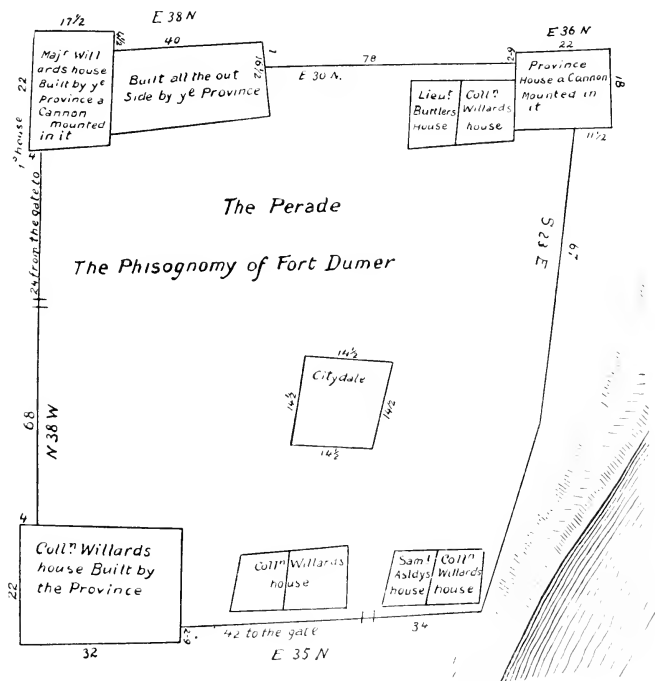 E 38 N
17½
40
E 36 N
22
1
78
2-9
22
Majʳ Will
ards house
Built by yᵉ
Province a
Cannon
mounted
in it
Built all the out
Side by yᵉ Province
16½
E 30 N.
Lieuᵗ
Burtlers
House
Collⁿ
Willards
house
Province
House a Cannon
Mounted in
it
18
11½
4
1ˢᵗ house
24 from the gate to
The Perade
S 23 E
67
The Phisognomy of Fort Dumer
14½
Citydale
14½
14½
14½
68
N 38 W
4
Collⁿ Willards
house Built by
the Province
22
32
Collⁿ Willards
house
Samˡ
Asldys
house
Collⁿ
Willards
house
42 to the gate
34
E 35 N